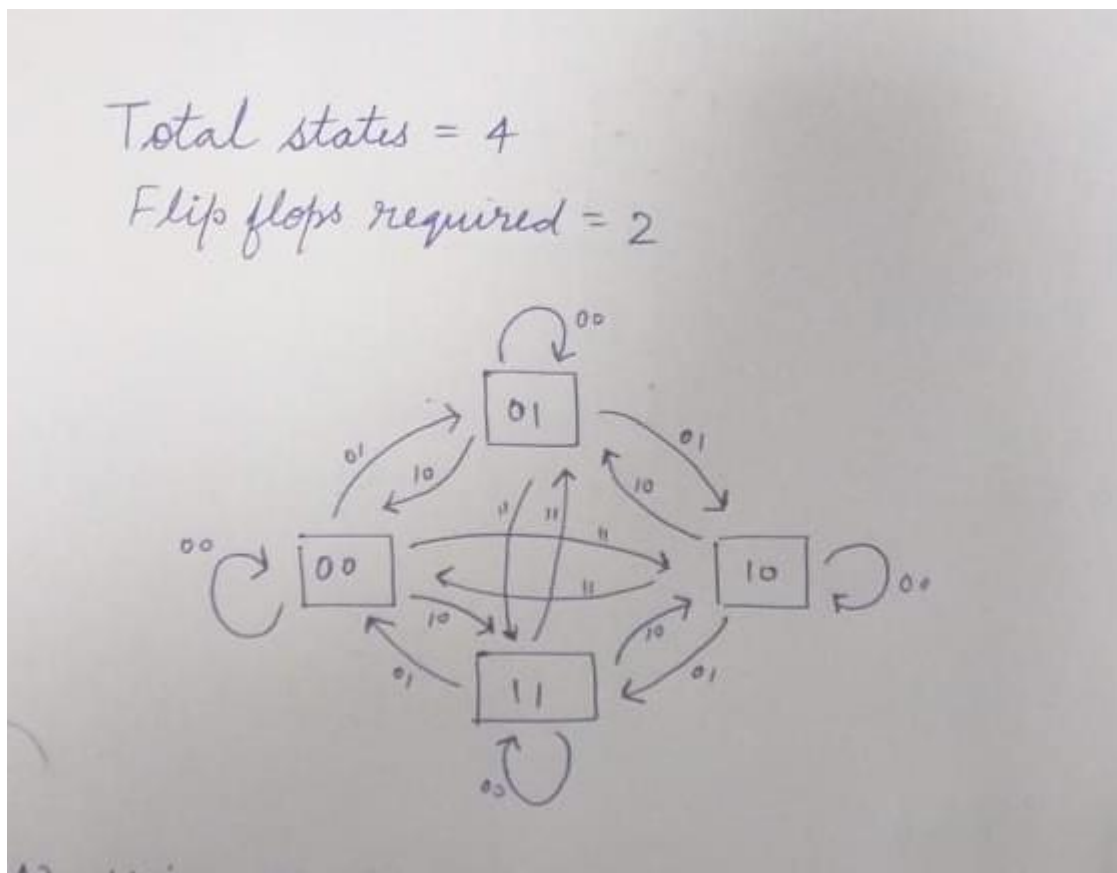 Total states = 4
Flip flops required = 2
00
01
01
10
01
10
11
11
00
00
11
11
10
00
10
01
10
01
11
00